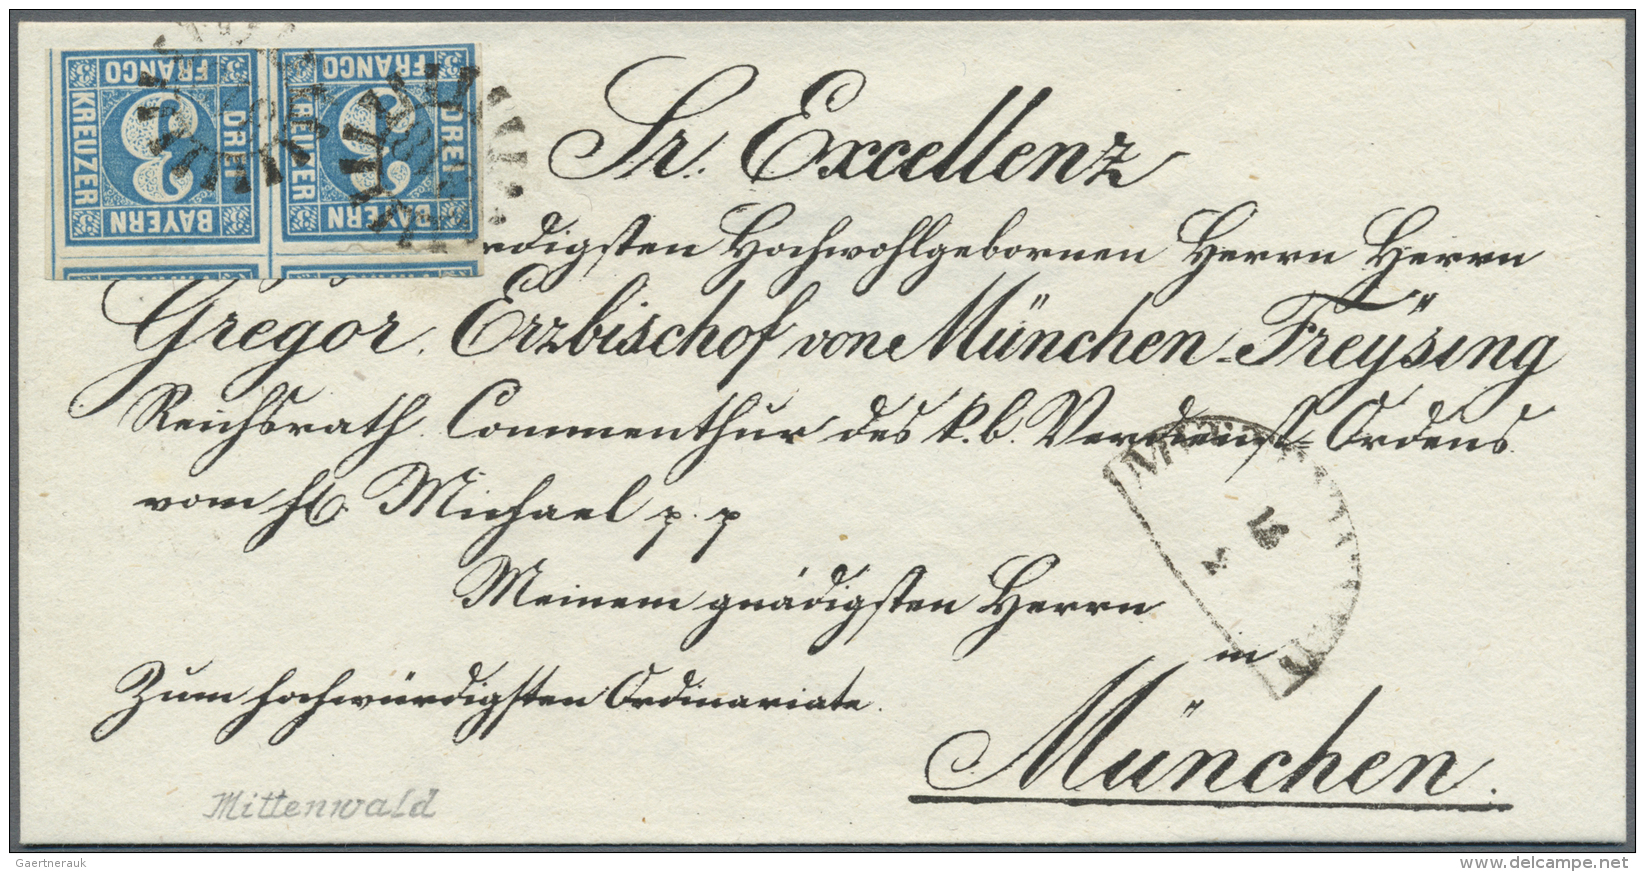 FRANCO
DREI
KREUZER
BAYERN
3
FRANCO
DREI
KREUZER
BAYERN
3
Sr. Excellenz
rdigsten Hochwohlgebornen Herrn Herrn
Gregor. Erzbischof von München-Freÿsing
Reichsrath. Commenthur des k. b. Verdienst-Ordens
vom hl. Michael p. p
Meinem gnädigsten Herrn
in
Zum hochwürdigsten Ordinariate.
München.
Mittenwald
Gaertnerauk
www.delcampe.net